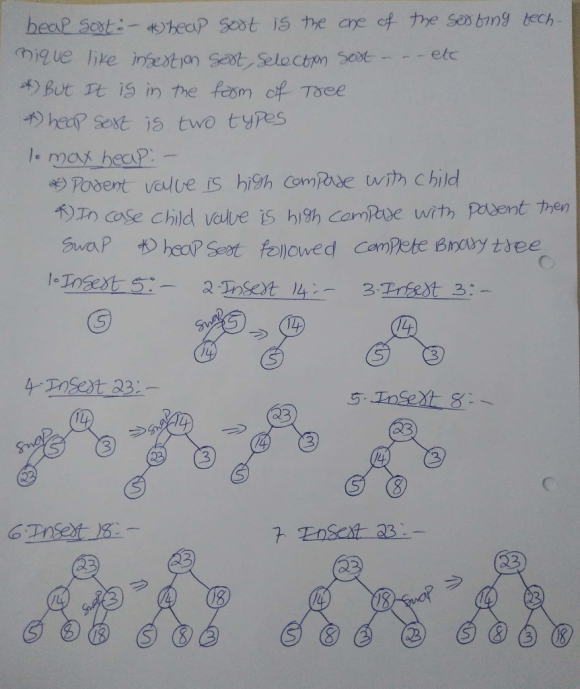 heap sort:- *) heap sort is the one of the sorting tech-
nique like insertion sort, selection sort - - - etc
*) But It is in the form of Tree
*) heap sort is two types
1. max heap:-
*) Parent value is high compare with child
*) In case child value is high compare with parent then
swap *) heap sort followed complete Binary tree
1. Insert 5:- 2. Insert 14:- 3. Insert 3:-
5
swap 5 14 ⇒ 14 5
14 5 3
4. Insert 23:-
swap 14 5 3 23 ⇒ swap 14 23 3 5 ⇒ 23 14 3 5
5. Insert 8:-
23 14 3 5 8
6. Insert 18:-
23 14 swap 3 5 8 18 ⇒ 23 14 18 5 8 3
7. Insert 23:-
23 14 18 swap 5 8 3 23 ⇒ 23 14 23 5 8 3 18